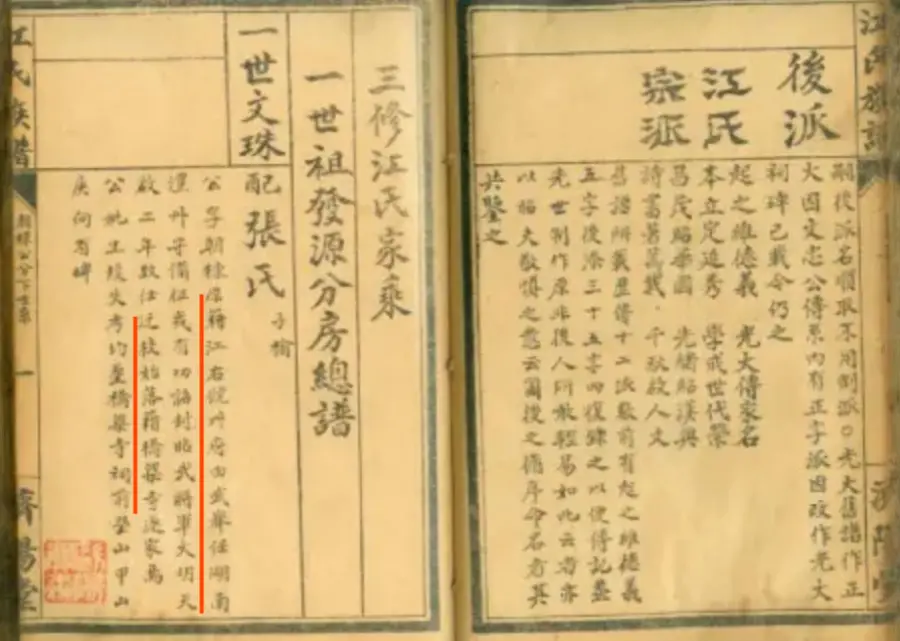 江氏族譜
後派
江氏
宗派
嗣後派名順取不用倒派○光大舊譜作正
大因文忠公傳系內有正字派因改作光大
祠碑已載今仍之
起之維德義 光大傳家名
本立定延秀 學成世代榮
昌茂賜榮國 光緒紹漢興
詩書著萬載 千秋啟人文
舊譜所載歷傳十二派數前有起之維德義
五字後添三十五字四復錄之以便傳記蓋
先世制作原非後人所敢輕易如此云者亦
以 敬慎之意云爾後之循序命名者其
共鑒之
三修江氏家乘
一世祖發源分房總譜
一世文珠
配張氏
子榆
公字朝棟原籍江右饒州府由武舉任湖南
澧州守備征戎有功誥封昭武將軍大明天
啟二年致仕迁移始落籍橋樂寺遂家焉
公妣生歿失考均塟橋樂寺祠前塋山甲山
庚向有碑
江氏族譜
朝棟公分下世系
一
濟陽堂